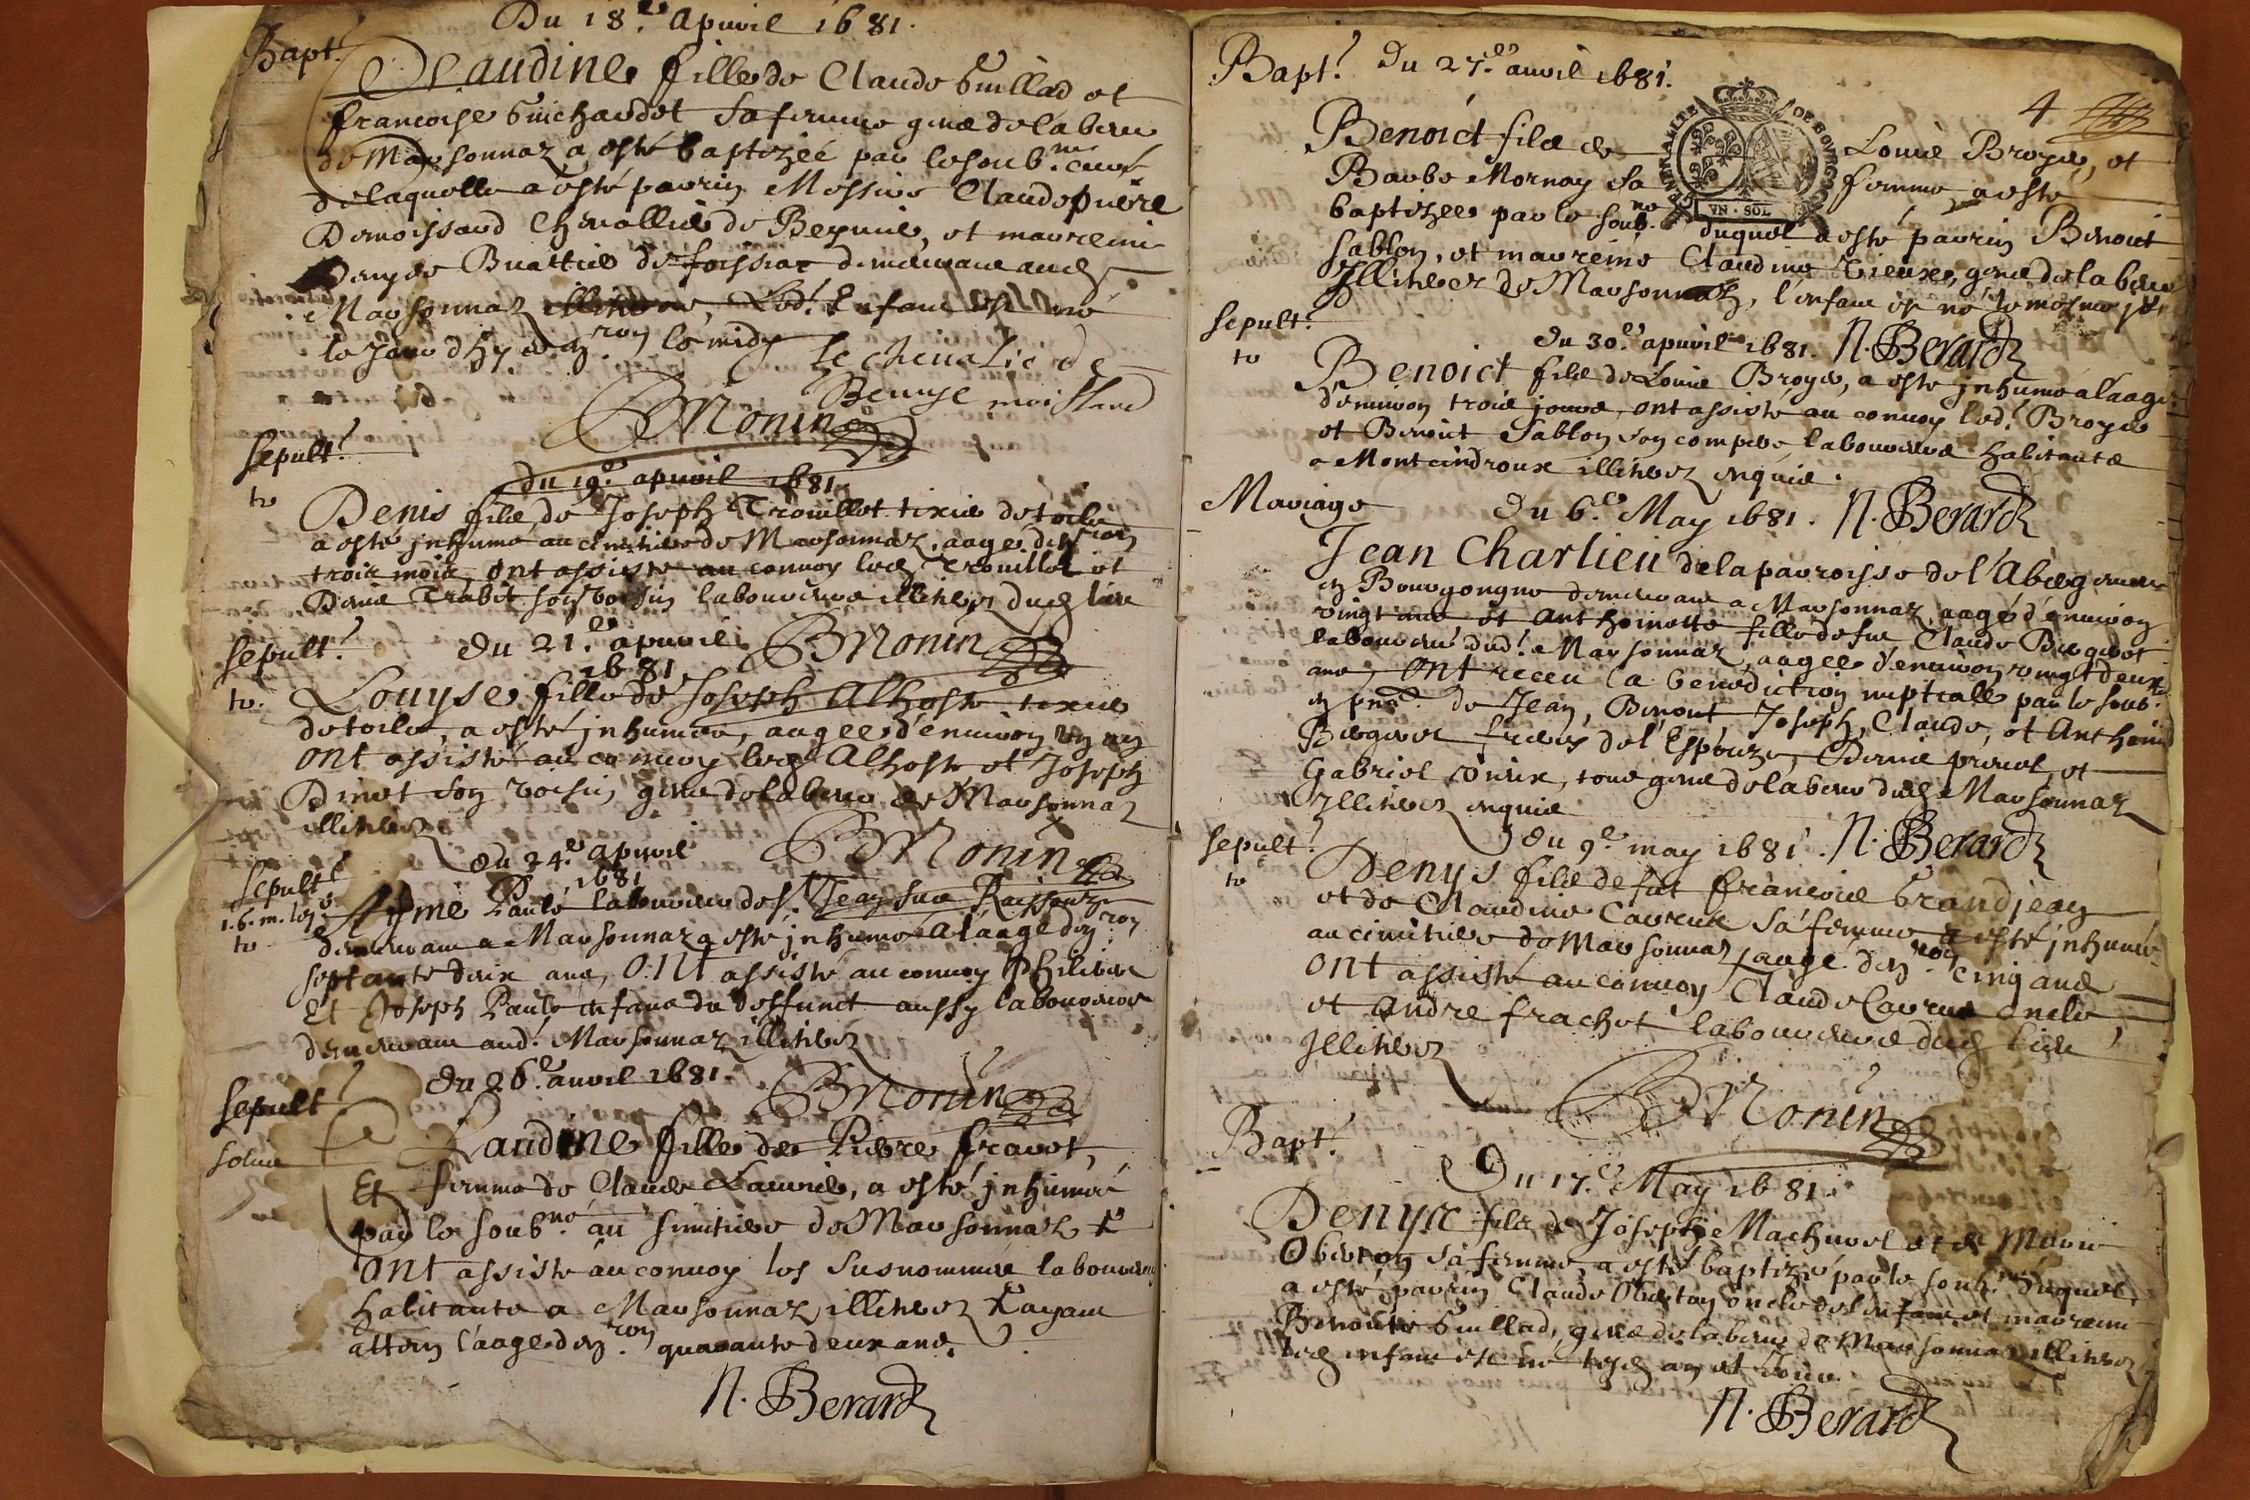 Du 18.e apuril 1681.
Bapt.
Claudine fille de Claude Guillad et
francoise Guichardet sa femme gens de labeur
de Marsonnaz a esté baptizée par le soub.né curé
de laquelle a esté parrin Messire Claude pierre
Demoissard Chevallier de et marreine
Denyse de foissiat demeurant aud.
Marsonnaz Led.t Enfant est né
le Jour d'hy en.ron le midy
le cheualie de
BMonin
sepult.
Du 19.e apuril 1681.
Denis filz de Joseph Trouillet tixier de toile
a esté jnhumé au cimitiere de Marsonnaz, aagé d'en.ron
trois mois, ont assisté au conuoy led. Trouillet et
Denis Trabit son voisin laboureurs illiteres dud. lieu
sepult.
Du 21.e apuril
1681
BMonin
Louyse fille de Joseph Alhoste tixier
de toile, a esté jnhumée, aagee d'enuiron un an
ont assisté au conuoy led. Alhoste et Joseph
Dinet son voisin gens de labeur de Marsonnaz
illiteres
BMonin
sepult.
Du 24.e apuril
1681
Aymé Paule laboureur
demeurant a Marsonnaz a esté jnhumé a l'aage d'en.ron
septante deux ans, ont assisté au conuoy Philibert
Et Joseph Paule enfans du deffunct aussy laboureurs
demeurant aud.t Marsonnaz illiteres
BMonin
sepult.
du 26.e auril 1681.
Claudine fille de Pierre frauet,
Et femme de Claude a esté jnhumée
par le soub.né au simitiere de Marsonnaz
ont assisté au conuoy les susnommés laboureurs
habitants a Marsonnaz illiteres ayant
atteins l'aage d'en.ron quarante deux ans.
N. Berard
Bapt. Du 27.e auril 1681.
4
GENERALITE DE BOVRGOGNE
VN · SOL
Benoict filz de Louis Broyer, et
Barbe Mornay sa femme, a esté
baptizee par le soub.né duquel a esté parrin Benoict
sablon, et marreine Claudine vieux, gens de labeur
Jlliteres de Marsonnaz, l'enfant est né le mesme jour
N. Berard
sepult.
du 30.e apuril 1681.
Benoict filz de Louis Broyer, a esté jnhumé a l'aage
d'enuiron trois jours, ont assisté au conuoy led.t Broyer
et Benoict sablon son compere laboureurs habitants
a Montcindroux illiteres enquis.
N. Berard
Mariage
Du 6.e May 1681.
Jean Charlieu de la parroisse de l'Abergement
en Bourgongne demeurant a Marsonnaz, aagé d'enuiron
vingt ans et Anthoinette fille de feu Claude
laboureur dud.t Marsonnaz, aagee d'enuiron vingt deux
ans, ont receu la benediction nuptiale par le soub.né
en pnce. de Jean, Benoict Joseph, Claude, et Anthoine
freres de l'Espouze, Denis et
Gabriel tous gens de labeur dud. Marsonnaz
Jlliteres enquis
sepult.
du 9.e may 1681.
N. Berard
Denys filz de fut francois Grandjean
et de Claudine sa femme a esté jnhumé
au cimitiere de Marsonnaz aagé d'en.ron cinq ans
ont assisté au conuoy Claude oncle
et Andre frachet laboureurs dud. lieu
Jlliteres
BMonin
Bapt.
Du 17.e May 1681.
Denys filz de Joseph Machurel et de Marie
sa femme a esté baptizé par le soub.né duquel
a esté parrin Claude oncle de l'enfant et marreine
Benoite Guillad, gens de labeur de Marsonnaz illiteres
led. enfant est né lesd. an et Jour.
N. Berard